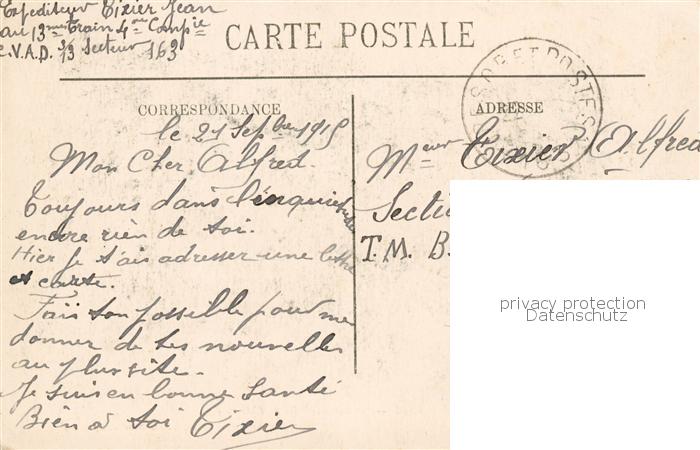 Expediteur Tixier Jean
au 13me Train 4me Compie
C.V.A.D. 3/13 Secteur 163
CARTE POSTALE
TRESOR ET POSTES
CORRESPONDANCE
ADRESSE
le 21 Sepbre 1915
Mon Cher Alfred.
Toujours dans l'inquietude
encore rien de toi.
Hier je t'ais adresser une lettre
et carte.
Fais ton possible pour me
donner de tes nouvelles
au plus vite.
Je suis en bonne santé
Bien à toi Tixier
Meur Tixier Alfred
Secti
T.M. B.
privacy protection
Datenschutz